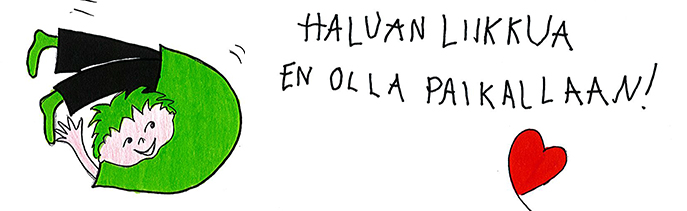 HALUAN LIIKKUA
EN OLLA PAIKALLAAN!